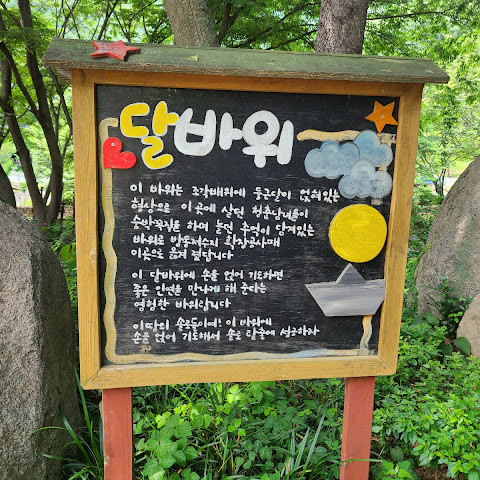 달바위
이 바위는 조각배위에 둥근달이 얹혀있는
형상으로 이곳에 살던 청춘남녀들이
숨박꼭질을 하며 놀던 추억이 담겨있는
바위로 방동저수지 확장공사때
이곳으로 옮겨 졌답니다
이 달바위에 손을 얹어 기도하면
좋은 인연을 만나게 해 준다는
영험한 바위랍니다
이땅의 솔로들이여! 이 바위에
손을 얹어 기도해서 솔로 탈출에 성공하자